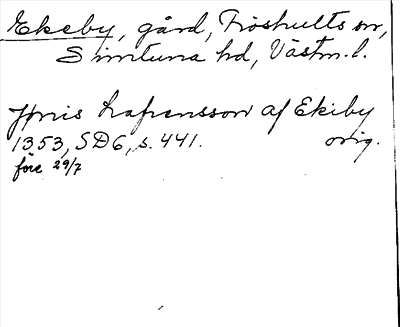 Ekeby, gård, Fröshults sn,
Simtuna hd, Västm. l.
Jönis Lafrensson af Ekiby
1353, SD6, s. 441. orig.
före 29/7